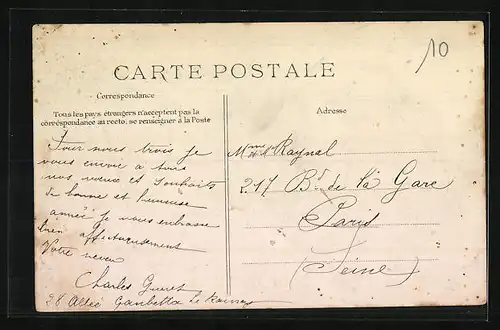 10
CARTE POSTALE
Correspondance
Tous les pays étrangers n'acceptent pas la
correspondance au recto, se renseigner à la Poste
Adresse
Pour nous trois je
vous envoie à tous
nos vœux et souhaits
de bonne et heureuse
année je vous embrasse
bien affectueusement
Votre neveu
Charles
28 Allée Gambetta Le Raincy
Raynal
217 Bd de la Gare
Paris
(Seine)